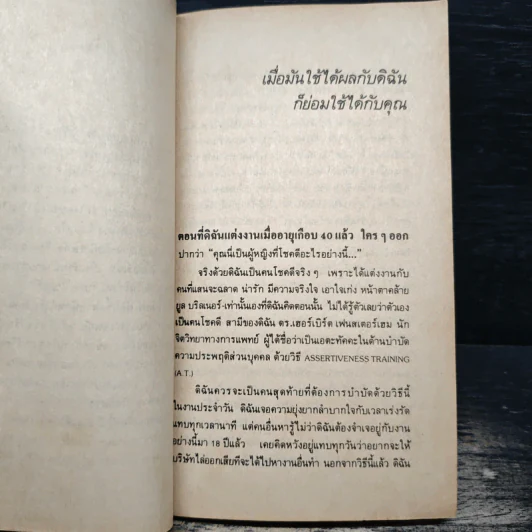 เมื่อมันใช้ได้ผลกับดิฉัน
ก็ย่อมใช้ได้กับคุณ
ตอนที่ดิฉันแต่งงานเมื่ออายุเกือบ 40 แล้ว ใคร ๆ ออก
ปากว่า "คุณนี่เป็นผู้หญิงที่โชคดีอะไรอย่างนี้..."
จริงด้วยดิฉันเป็นคนโชคดีจริง ๆ เพราะได้แต่งงานกับ
คนที่แสนจะฉลาด น่ารัก มีความจริงใจ เอาใจเก่ง หน้าตาคล้าย
ยูล บริลเนอร์-เท่านั้นเองที่ดิฉันคิดตอนนั้น ไม่ได้รู้ตัวเลยว่าตัวเอง
เป็นคนโชคดี สามีของดิฉัน ดร.เฮอร์เบิร์ต เฟนสเตอร์เฮม นัก
จิตวิทยาทางการแพทย์ ผู้ได้ชื่อว่าเป็นเอตะทัคคะในด้านบำบัด
ความประพฤติส่วนบุคคล ด้วยวิธี ASSERTIVENESS TRAINING
(A.T.)
ดิฉันควรจะเป็นคนสุดท้ายที่ต้องการบำบัดด้วยวิธีนี้
ในงานประจำวัน ดิฉันเจอความยุ่งยากลำบากใจกับเวลาเร่งรัด
แทบทุกเวลานาที แต่คนอื่นหารู้ไม่ว่าดิฉันต้องจำเจอยู่กับงาน
อย่างนี้มา 18 ปีแล้ว เคยคิดหวังอยู่แทบทุกวันว่าอยากจะให้
บริษัทไล่ออกเสียทีจะได้ไปหางานอื่นทำ นอกจากวิธีนี้แล้ว ดิฉัน